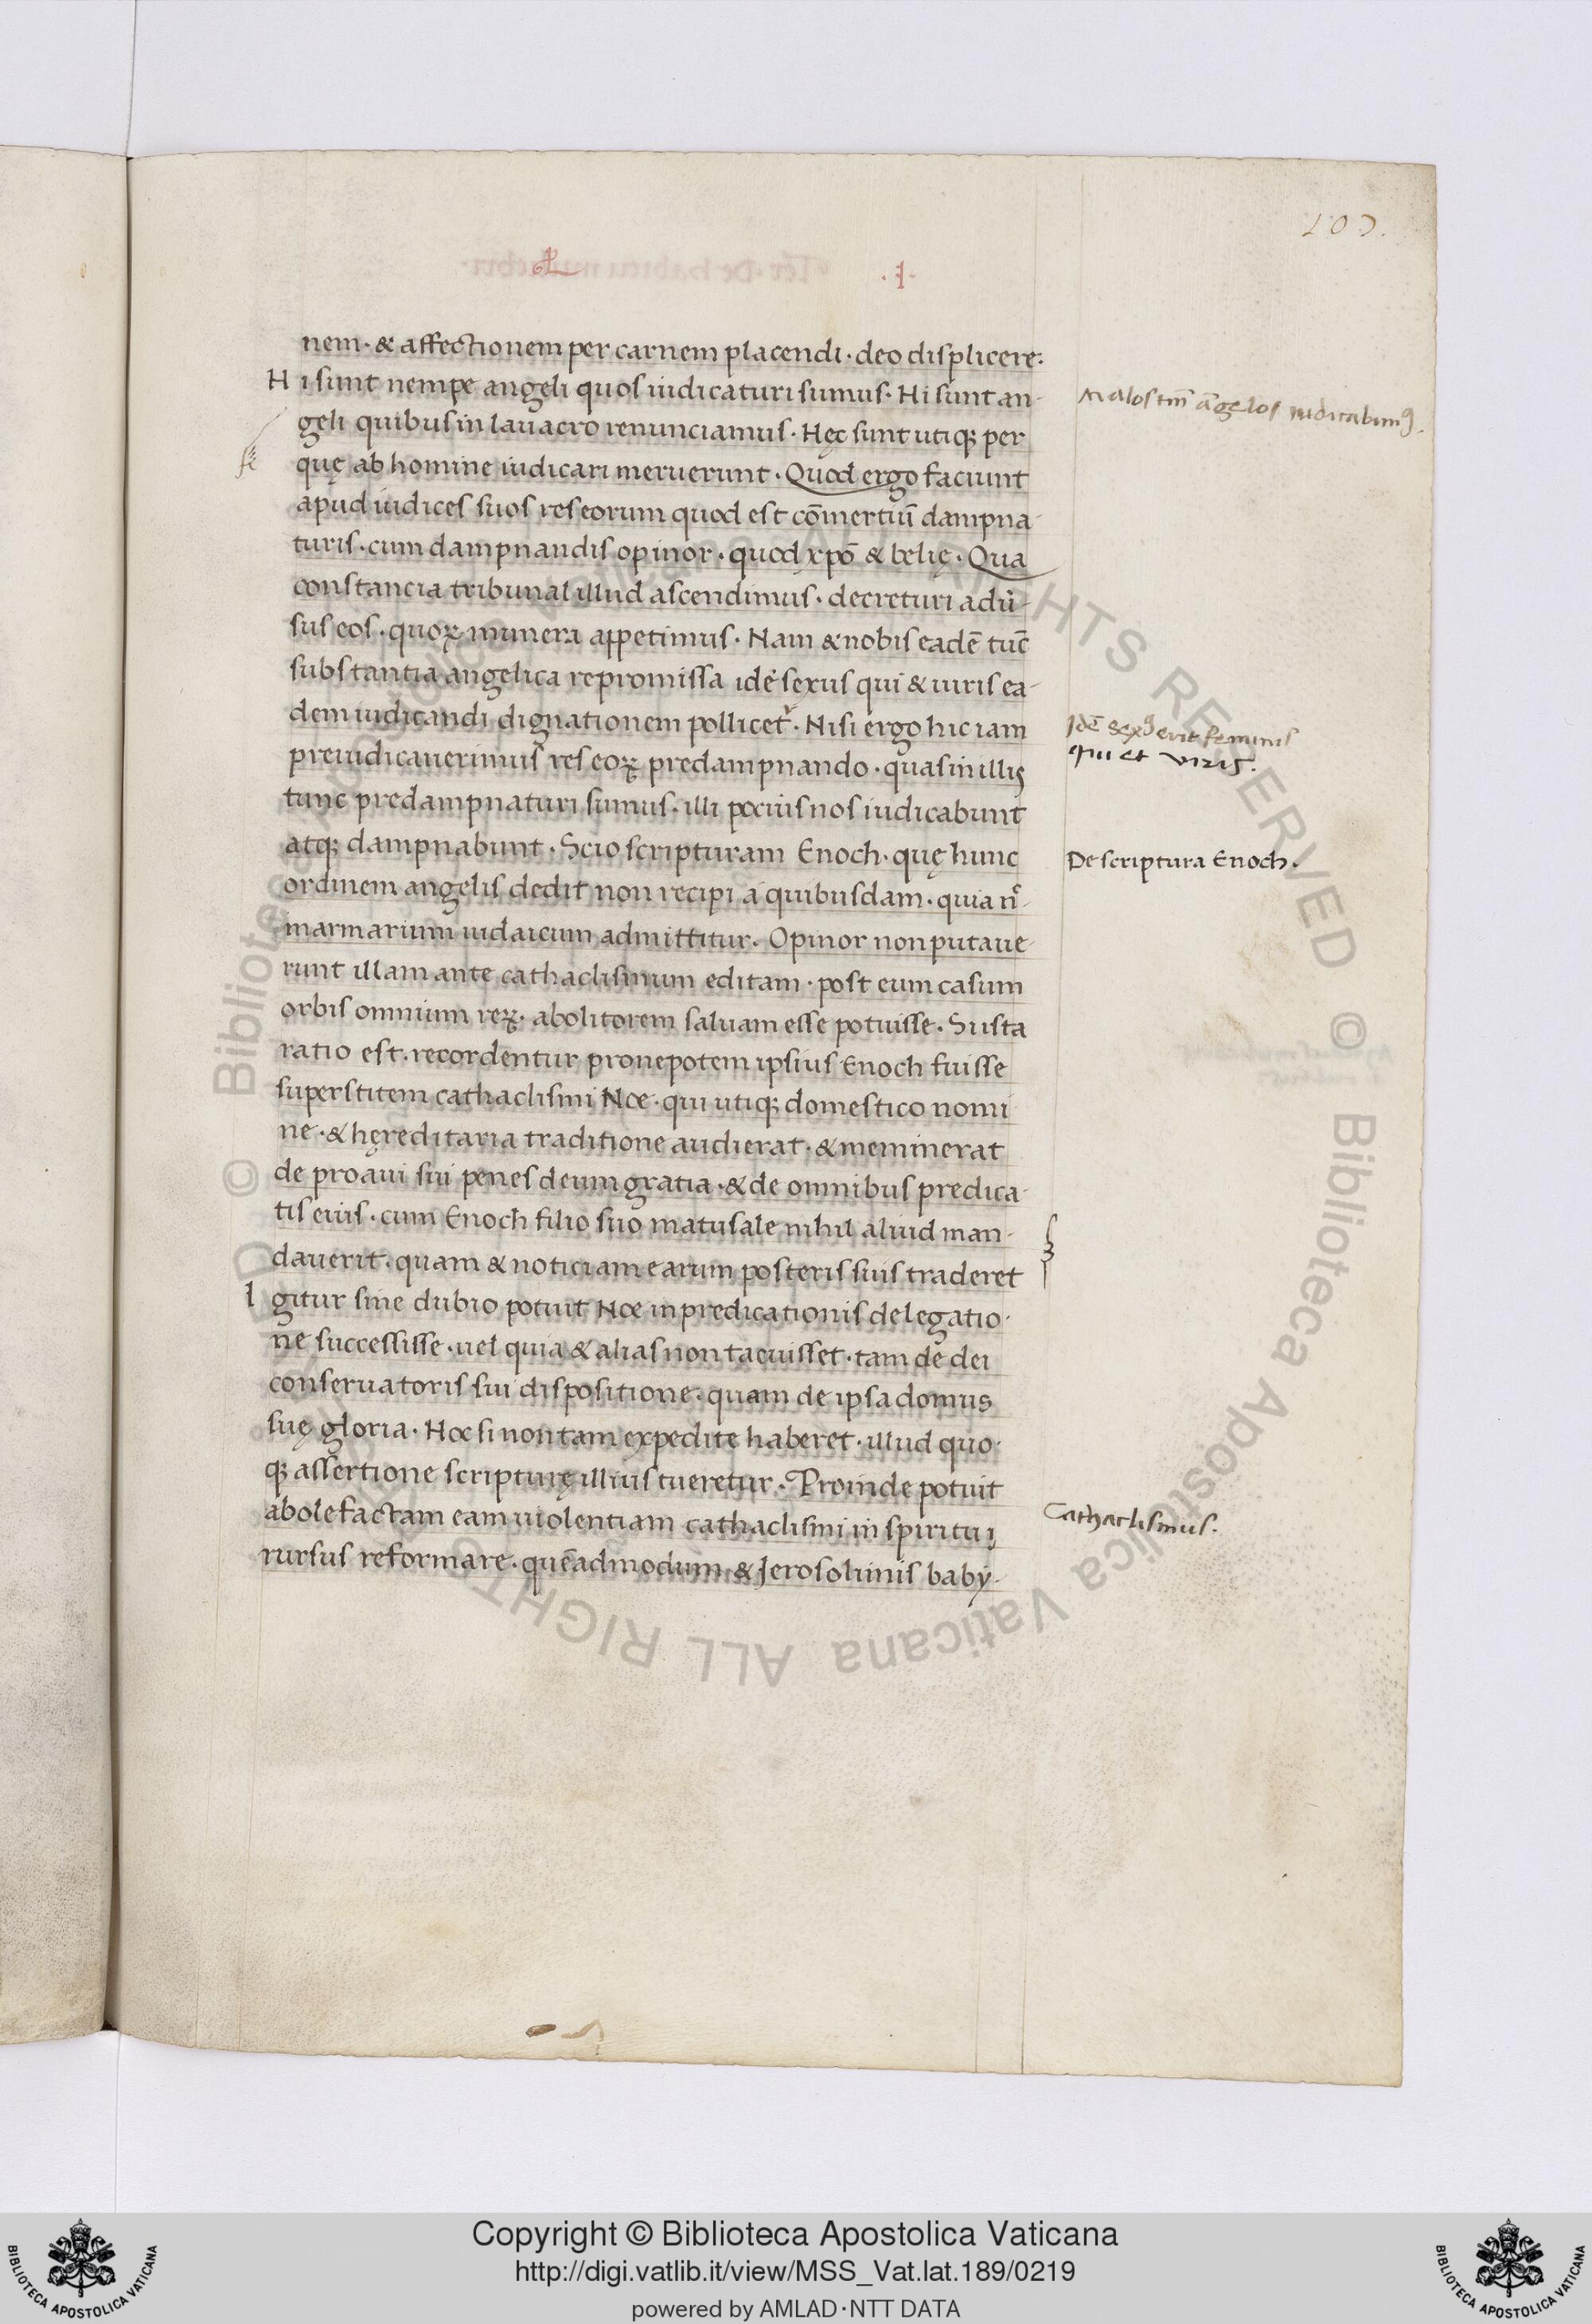 103.
L · I ·
nem · & affectionem per carnem placendi · deo displicere:
Hi sunt nempe angeli quos iudicaturi sumus · Hi sunt an-
geli quibus in lauacro renunciamus · Hęc sunt utiqꝫ per
quę ab homine iudicari meruerunt · Quod ergo faciunt
apud iudices suos res eorum quod est cōmertiū dampna-
turis · cum dampnandis opinor · quod xpō & belię · Qua
constancia tribunal illud ascendimus · decreturi adū-
sus eos · quoꝝ munera appetimus · Nam & nobis eadē tūc
substantia angelica repromissa idē sexus qui & uiris ea-
dem iudicandi dignationem pollicet᷑ · Nisi ergo hic iam
preiudicauerimus res eoꝝ predampnando · quas in illis
tunc predampnaturi sumus · illi pocius nos iudicabunt
atqꝫ dampnabunt · Scio scripturam Enoch · quę hunc
ordinem angelis dedit non recipi a quibusdam · quia n̄-
in armarium iudaicum admittitur · Opinor non putaue-
runt illam ante cathaclismum editam · post eum casum
orbis omnium reꝝ · abolitorem saluam esse potuisse · Si ista
ratio est · recordentur pronepotem ipsius Enoch fuisse
superstitem cathaclismi Noe · qui utiqꝫ domestico nomi
ne · & hęreditaria traditione audierat · & meminerat
de proaui sui penes deum gratia · & de omnibus predica-
tis eius · cum Enoch filio suo matusale nihil aliud man-
dauerit · quam & noticiam earum posteris suis traderet
Igitur sine dubio potuit Noe in predicationis delegatio-
ne successisse · uel quia & alias non tacuisset · tam de dei
conseruatoris sui dispositione · quam de ipsa domus
suę gloria · Hoc si non tam expedite haberet · illud quo-
qꝫ assertione scripturę illius tueretur · Proinde potuit
abolefactam eam uiolentiam cathaclismi in spiritu i
rursus reformare · quēadmodum & Jerosolimis baby-
Malos tn̄ āgelos iudicabimꝰ.
Idē sexꝰ erit feminis
qui et viris.
De scriptura Enoch.
Cathaclismus.
© Biblioteca Apostolica Vaticana ALL RIGHTS RESERVED
Copyright © Biblioteca Apostolica Vaticana
http://digi.vatlib.it/view/MSS_Vat.lat.189/0219
powered by AMLAD·NTT DATA
BIBLIOTECA APOSTOLICA VATICANA
BIBLIOTECA APOSTOLICA VATICANA